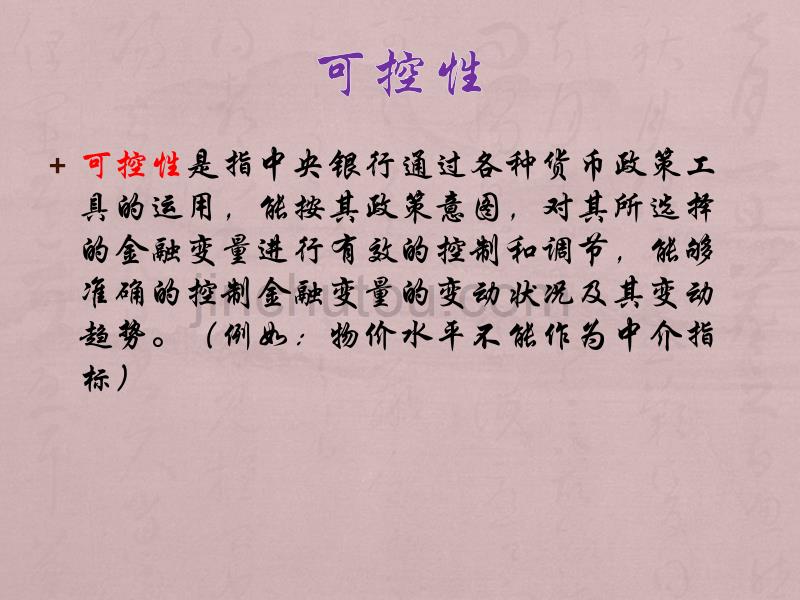 可控性
+ 可控性是指中央银行通过各种货币政策工
具的运用，能按其政策意图，对其所选择
的金融变量进行有效的控制和调节，能够
准确的控制金融变量的变动状况及其变动
趋势。（例如：物价水平不能作为中介指
标）
jinchutou.com